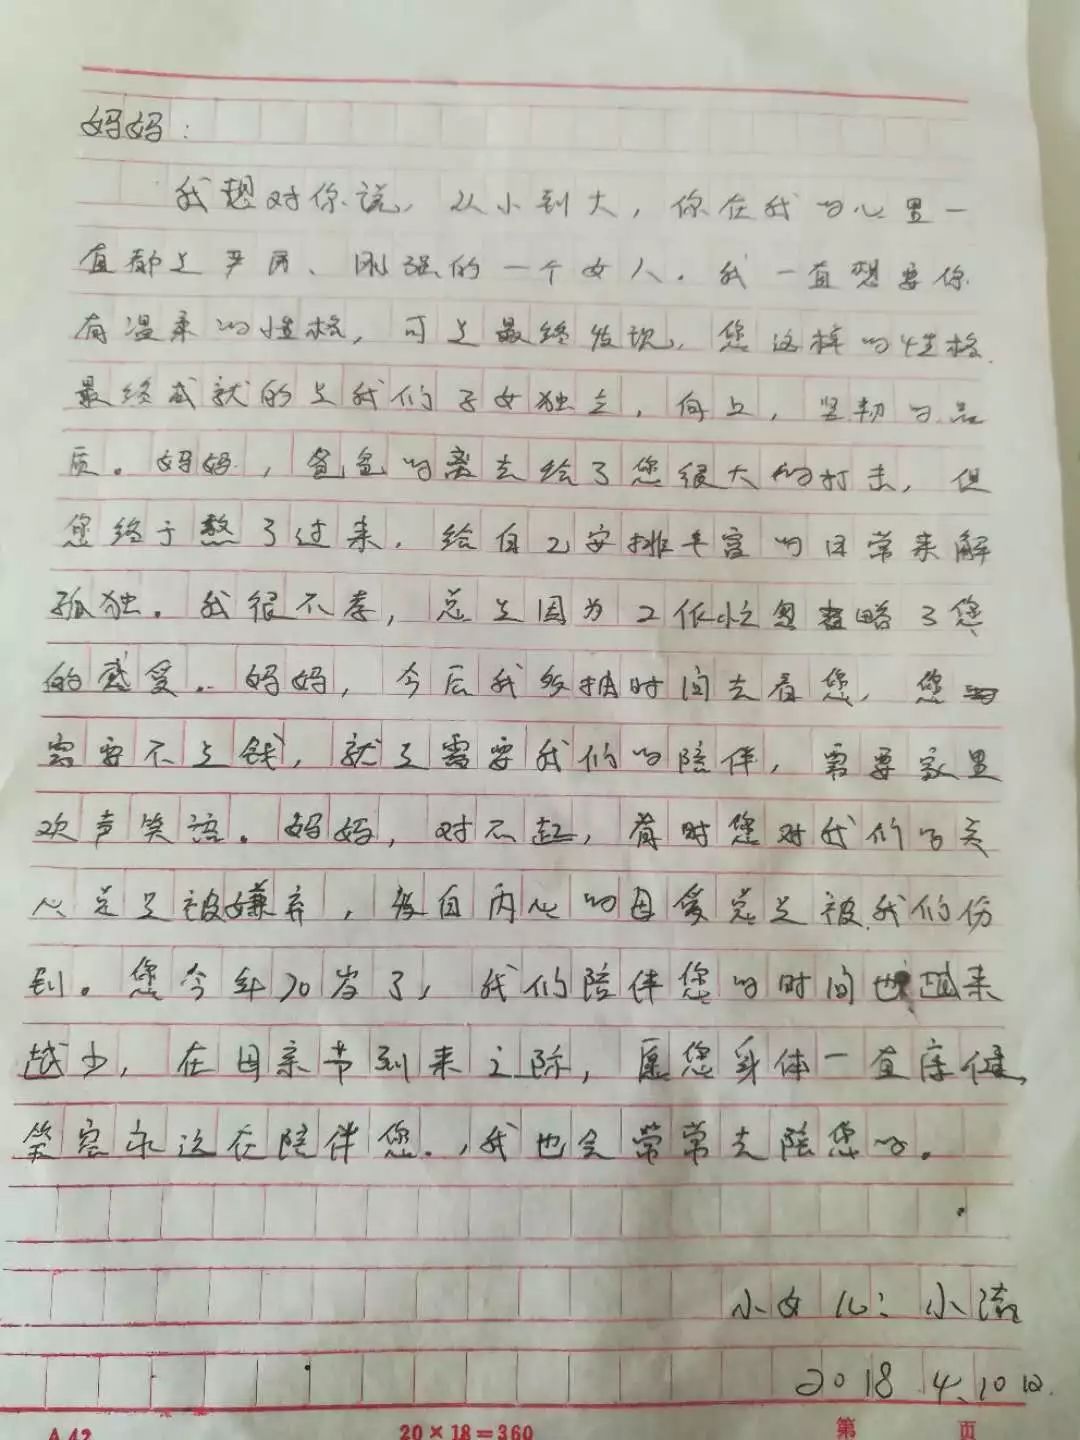 妈妈：
我想对你说，从小到大，你在我的心里一
直都是严厉、刚强的一个女人。我一直想要你
有温柔的性格，可是最终发现，您这样的性格
最终成就的是我们子女独立，向上，坚韧的品
质。妈妈，爸爸的离去给了您很大的打击，但
您终于熬了过来，给自己安排丰富的日常来解
孤独。我很不孝，总是因为工作忙忽略了您
的感受。妈妈，今后我多抽时间去看您，您
需要不是钱，就是需要我们的陪伴，需要家里
欢声笑语。妈妈，对不起，有时您对我们的关
心总是被嫌弃，发自内心的母爱总是被我们份
到。您今年70岁了，我们陪伴您的时间也越来
越少，在母亲节到来之际，愿您身体一直康健，
笑容永远在陪伴您.，我也会常常去陪您的。
小女儿：小
2018 4.10日
A 42 20×18=360 第 页